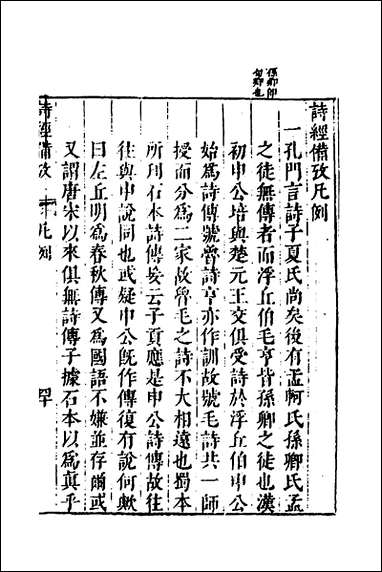 孫卿即
荀卿也
詩經備攷凡例
一孔門言詩子夏氏尚矣後有孟軻氏孫卿氏孟
之徒無傳者而浮丘伯毛亨皆孫卿之徒也漢
初申公培與楚元王交俱受詩於浮丘伯申公
始為詩傳號魯詩亨亦作訓故號毛詩共一師
授而分為二家故魯毛之詩不大相遠也蜀本
所刋石本詩傳妄云子貢應是申公詩傳故往
往與申說同也或疑申公旣作傳復有說何歟
曰左丘明為春秋傳又為國語不嫌並存爾或
又謂唐宋以來俱無詩傳子據石本以為真乎
詩經備攷 凡例